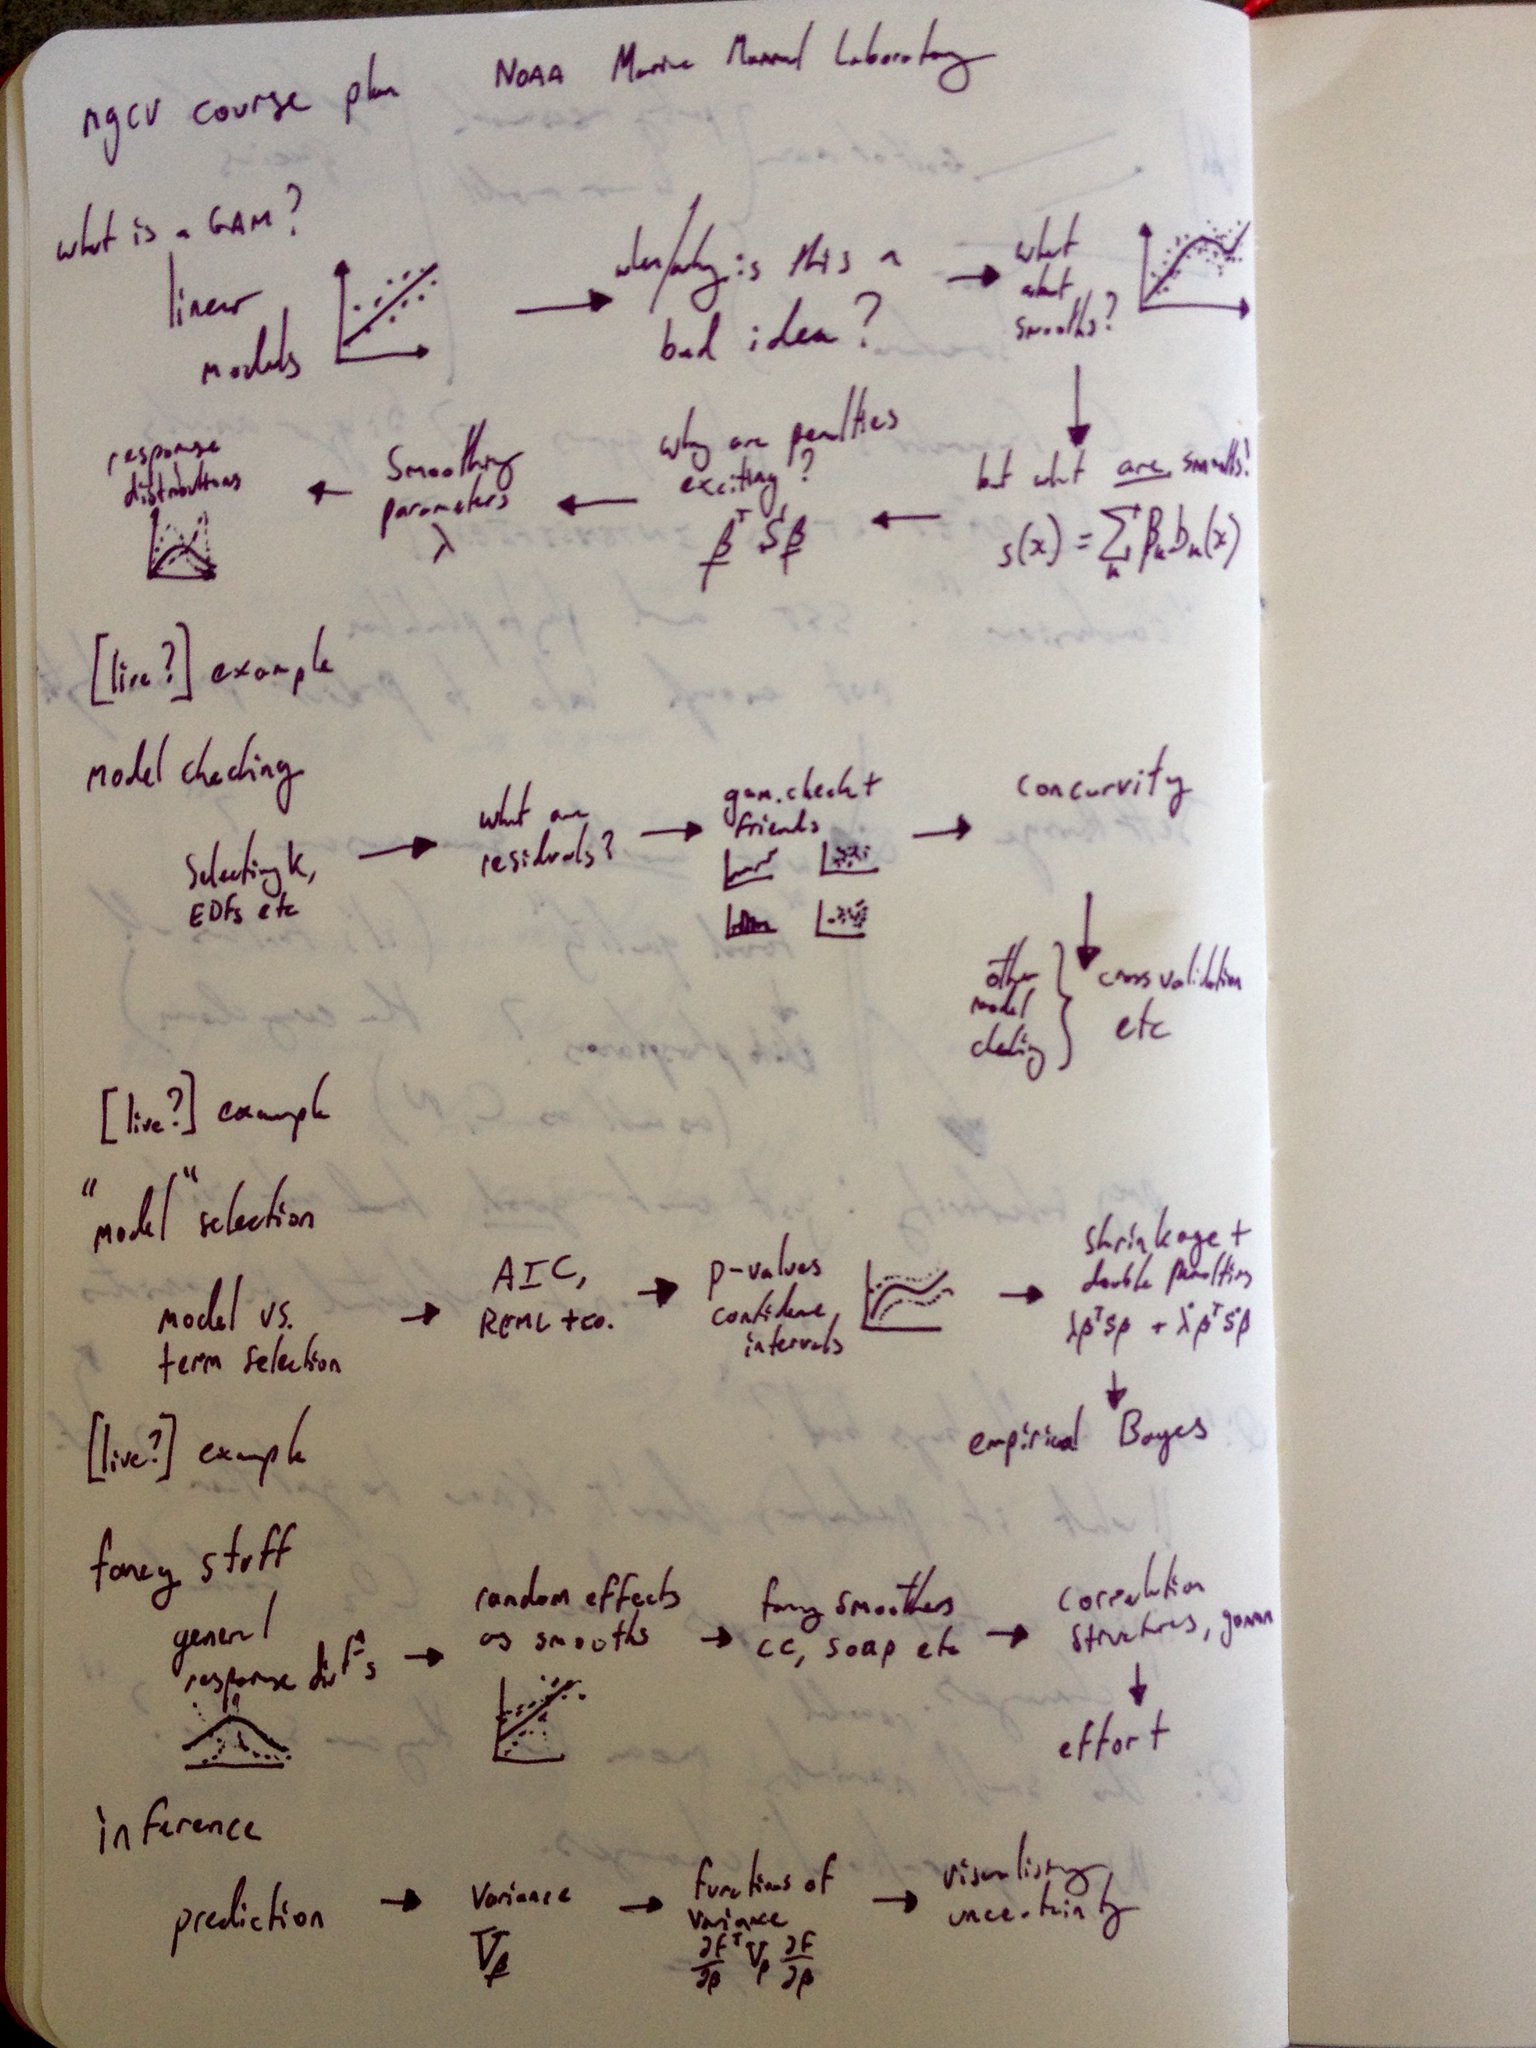 mgcv course plan NOAA Marine Mammal Laboratory
what is a GAM?
linear
models
when/why is this a
bad idea?
what
about
smooths?
but what are smooths?
s(x) = ∑ₖ βₖ bₖ(x)
why are penalties
exciting?
βᵀSβ
Smoothing
parameters
λ
response
distributions
[live?] example
model checking
selecting k,
EDFs etc
what are
residuals?
gam.check +
friends
concurvity
other
model
checking
cross validation
etc
[live?] example
"model" selection
model vs.
term selection
AIC,
REML + co.
p-values
confidence
intervals
shrinkage +
double penalties
λβᵀSβ + λ*βᵀS*β
empirical Bayes
[live?] example
fancy stuff
general
response
random effects
as smooths
fancy smoothers
cc, soap etc
correlation
structures, gamm
effort
inference
prediction
variance
V_β
functions of
variance
∂f/∂βᵀ V_β ∂f/∂β
visualising
uncertainty